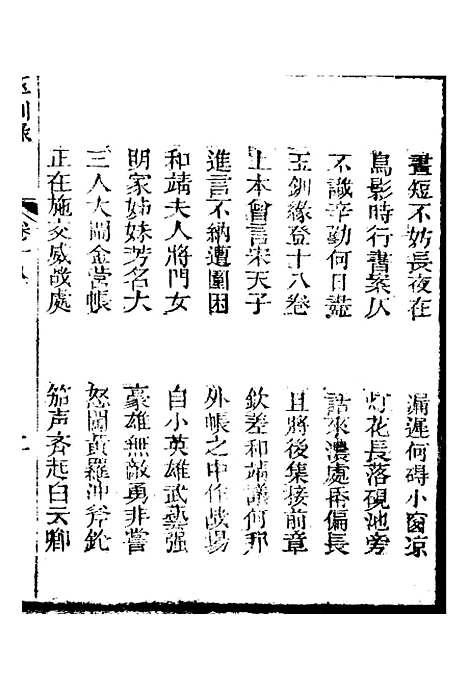 晝短不妨長夜在 漏遲何碍小窗凉
鳥影時行書案仄 灯花長落硯池旁
不識辛勤何日盡 話來濃處再偏長
玉釧緣登十八卷 且將後集接前章
上本曾言宋天子 欽差和靖議何邦
進言不納遭圍困 外帳之中作战场
和靖夫人將門女 自小英雄武藝强
明家姊妹芳名大 豪雄無敵勇非嘗
三人大鬧金营帳 怒闘黃羅冲斧鈗
正在施交威战處 笳声齐起白云鄉
玉釧緣 卷十八 二